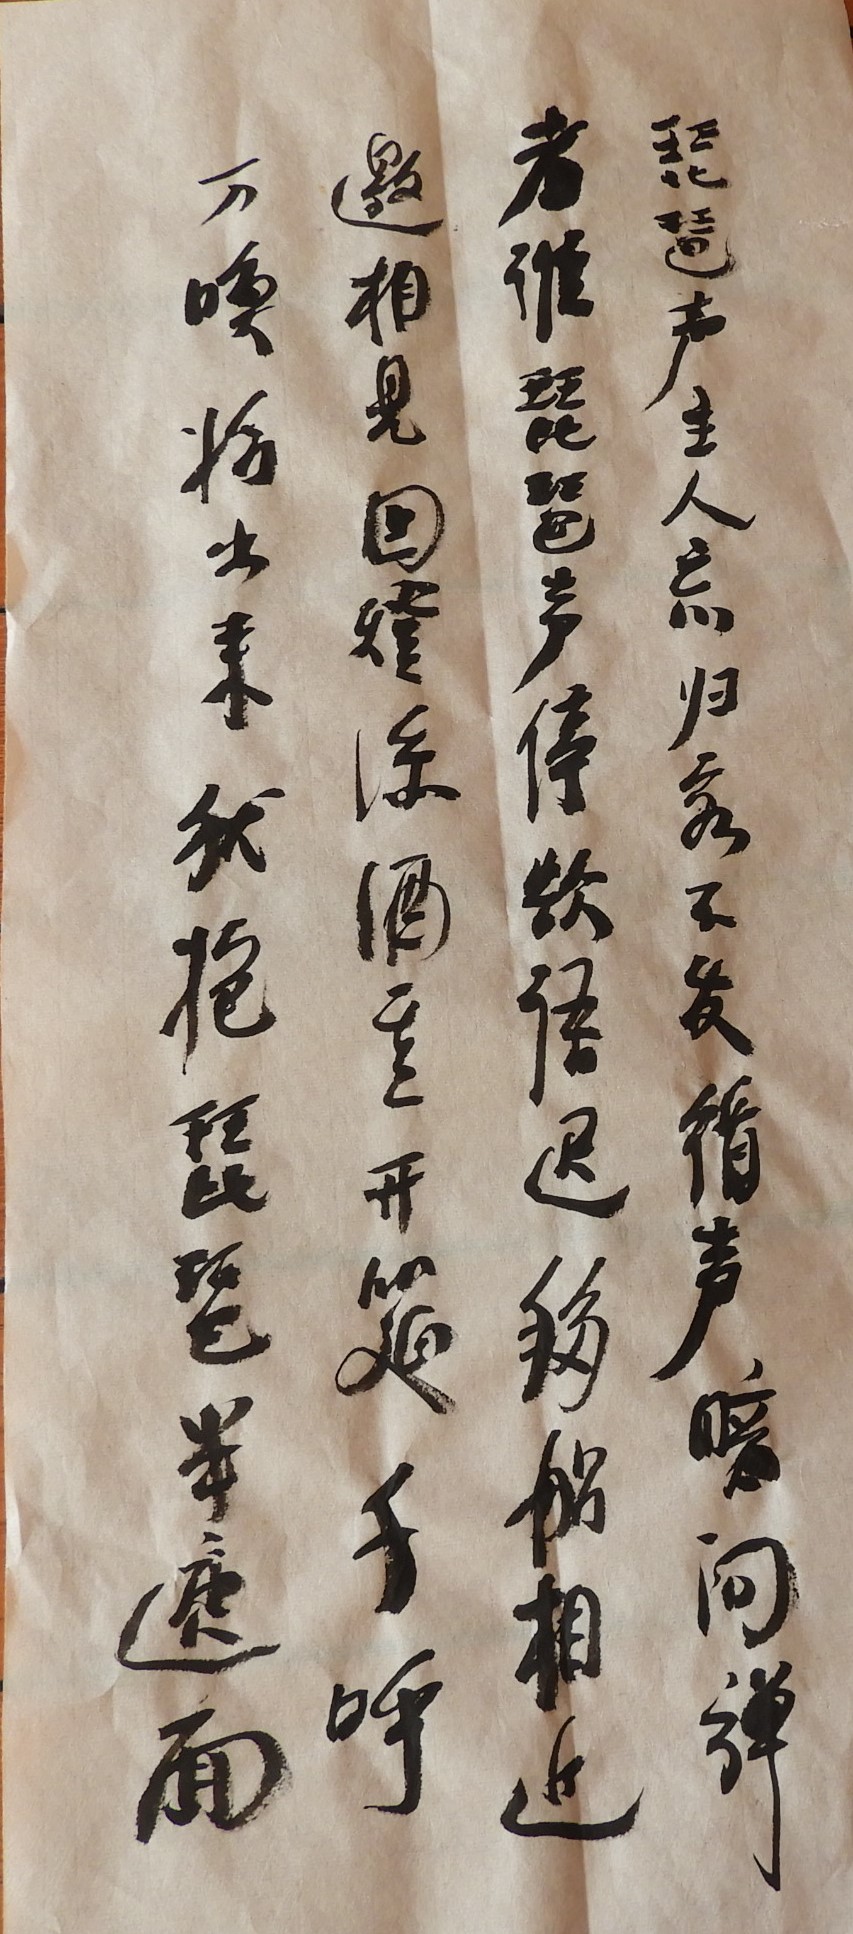 琵琶声主人忘归客不发循声暖问弹
者谁琵琶声停欲语迟移船相近
邀相见回燈添酒重开筵千呼
万唤始出来犹抱琵琶半遮面